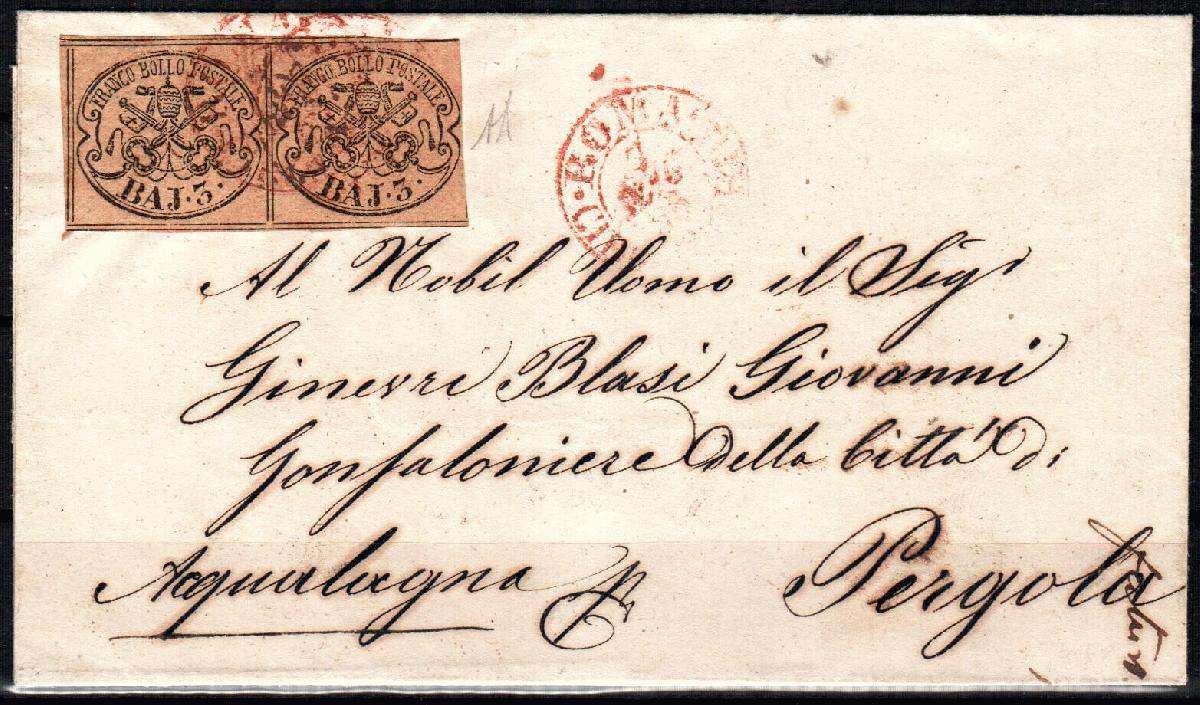 FRANCO BOLLO POSTALE
BAJ·3·
FRANCO BOLLO POSTALE
BAJ·3·
ROMA
Al Nobil Uomo il Sigr
Ginevri Blasi Giovanni
Gonfaloniere della Città di
Acqualagna p Pergola